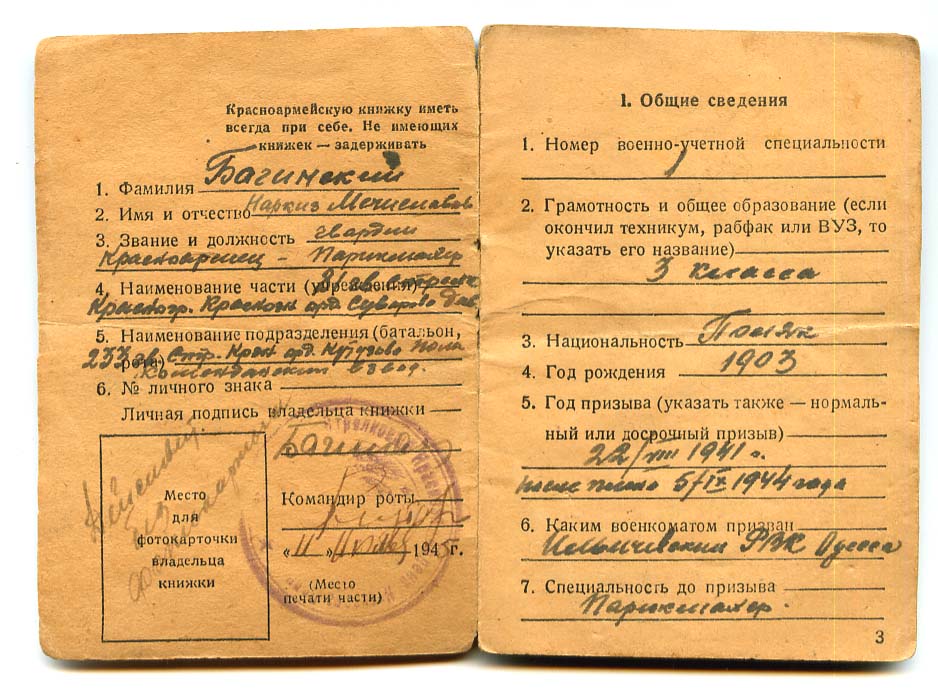 Красноармейскую книжку иметь
всегда при себе. Не имеющих
книжек — задерживать
1. Фамилия Багинский
2. Имя и отчество Наркиз Мечиславов
3. Звание и должность гвардии
Красноармеец - Парикмахер
4. Наименование части (учреждения)
Краснозн.
5. Наименование подразделения (батальон,
рота) 233 гв. Стр.
Комендантский взвод.
6. № личного знака
Личная подпись владельца книжки
Командир роты
" 11 " 1945 г.
(Место
печати части)
Место
для
фотокарточки
владельца
книжки
Действит.
без
фотокарточки
1. Общие сведения
1. Номер военно-учетной специальности
2. Грамотность и общее образование (если
окончил техникум, рабфак или ВУЗ, то
указать его название)
3 класса
3. Национальность Поляк
4. Год рождения 1903
5. Год призыва (указать также — нормаль-
ный или досрочный призыв)
22/VIII 1941 г.
после 5/IX 1944 года
6. Каким военкоматом призван
Ильичевским РВК Одесса
7. Специальность до призыва
Парикмахер.
3